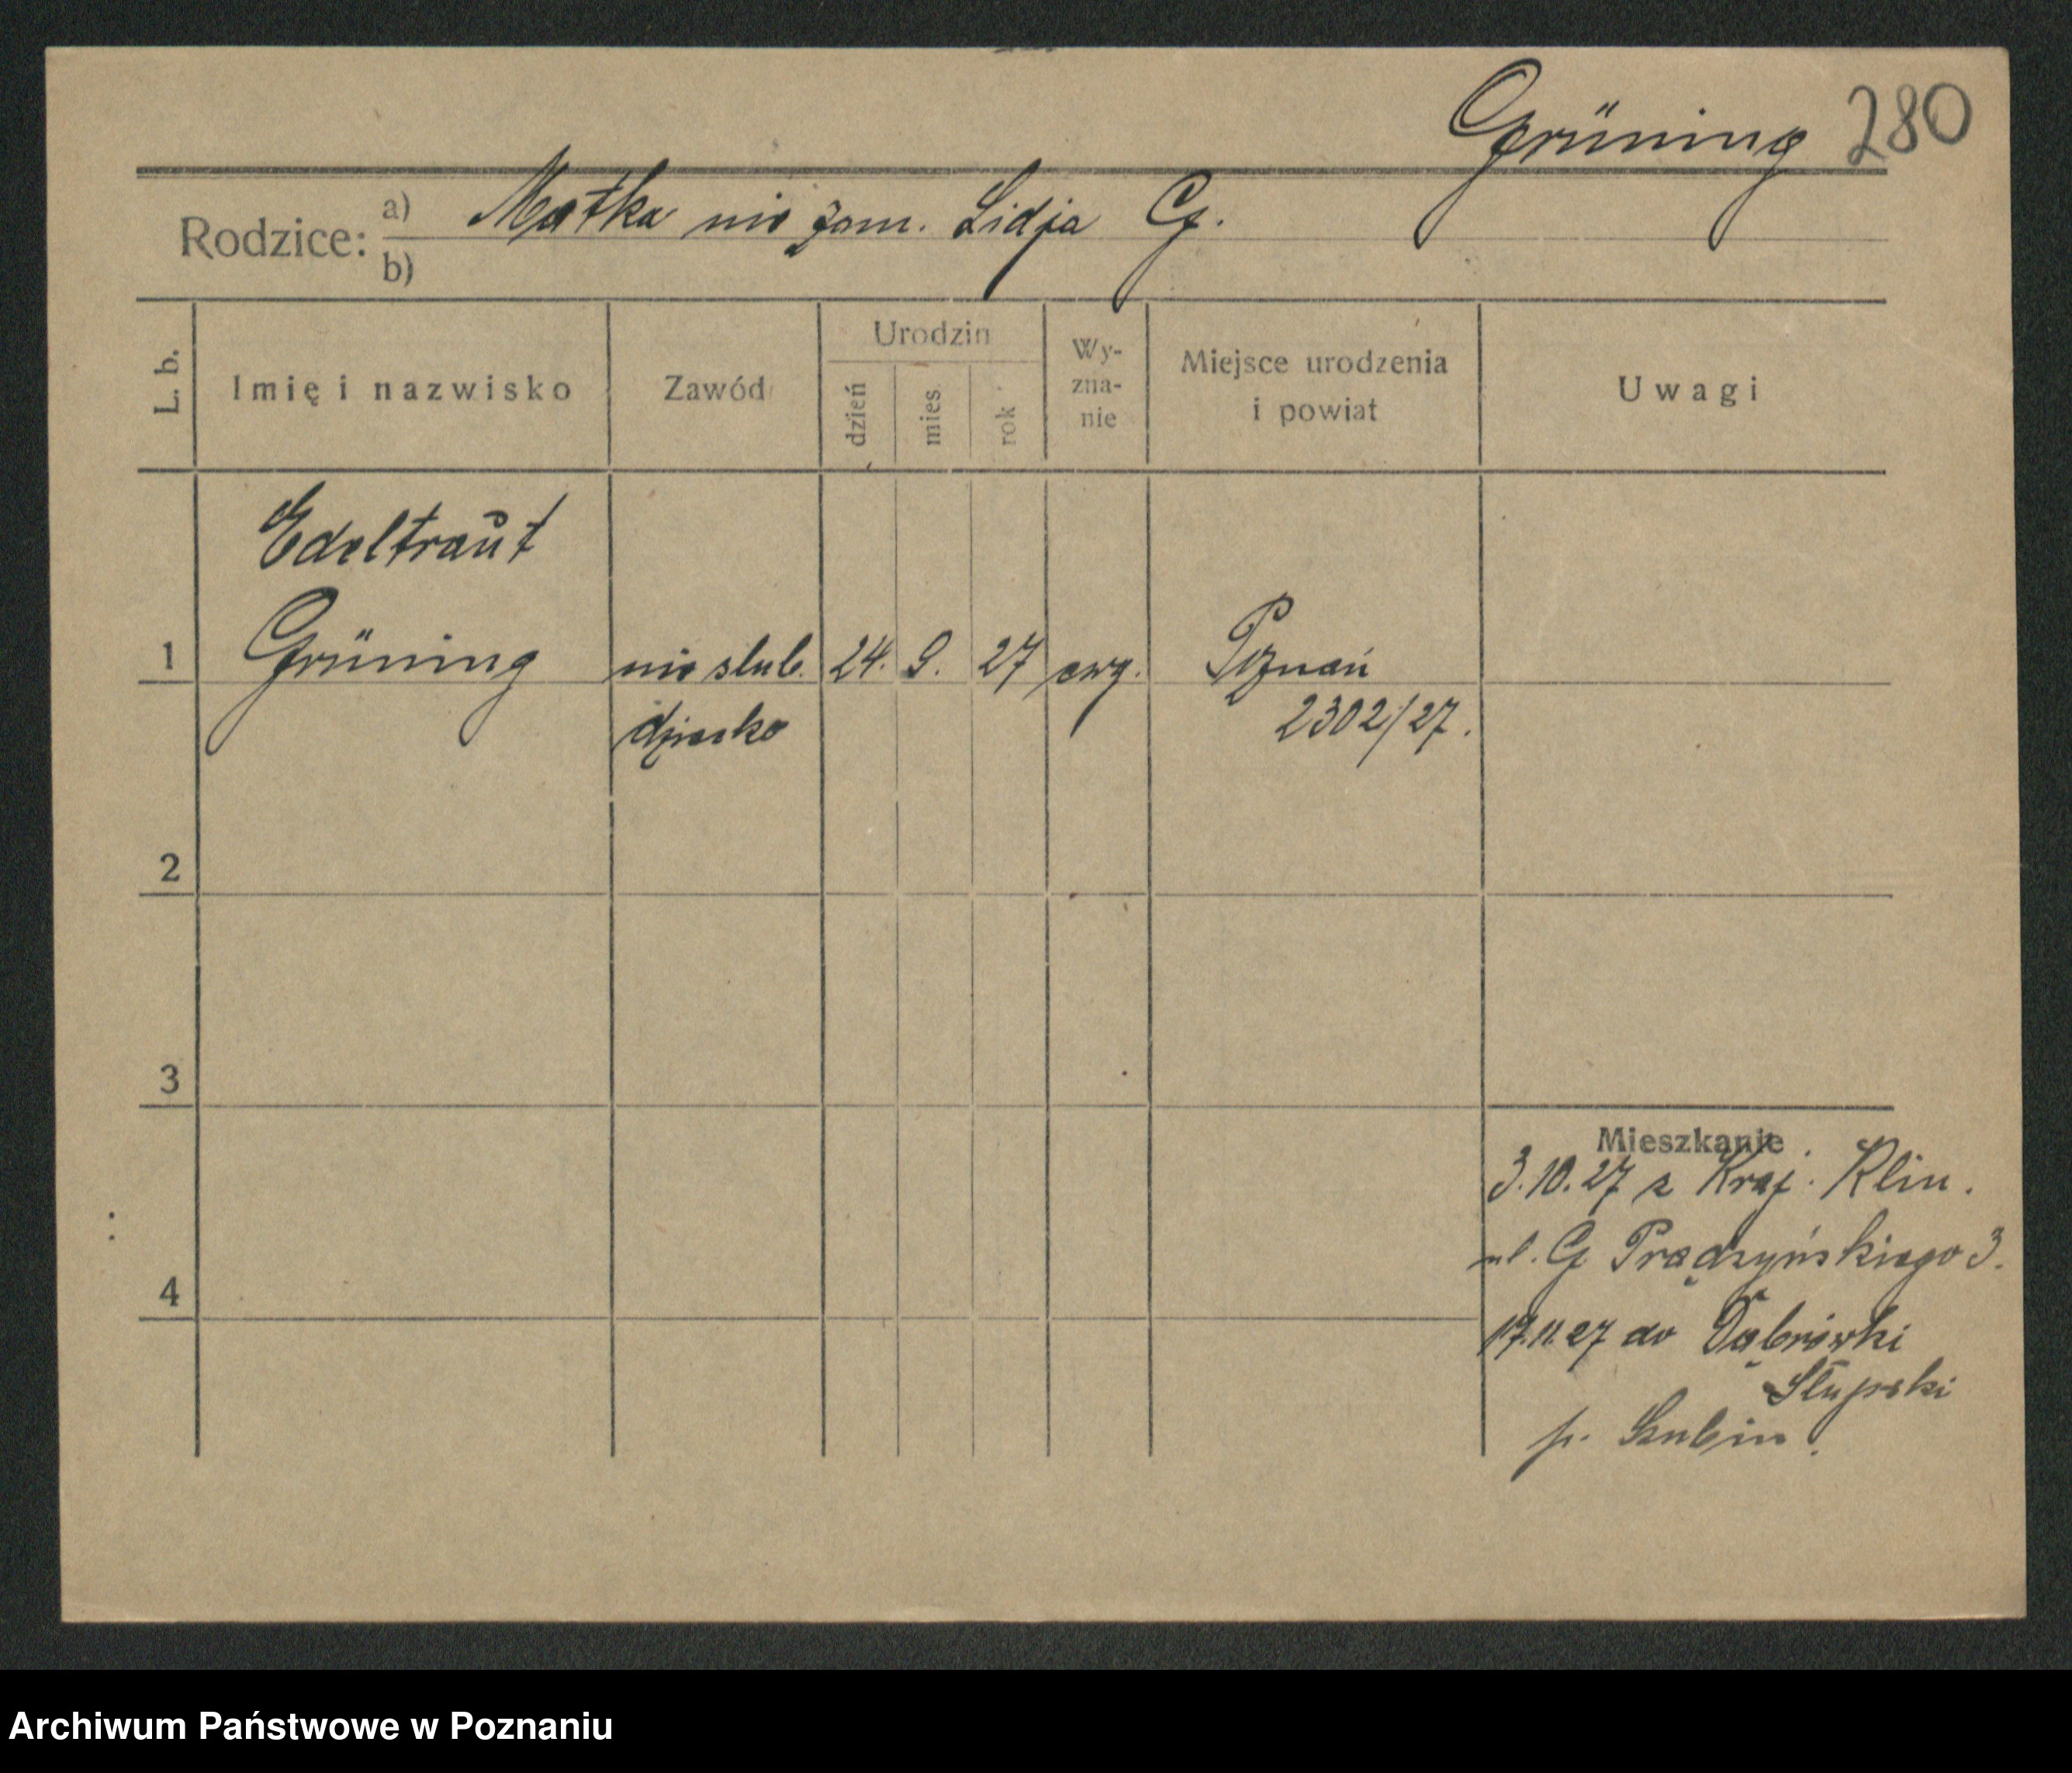 Grüning 280
Rodzice: a) Matka nie zam. Lidja G.
b)
L. b. Imię i nazwisko Zawód Urodzin dzień mies. rok Wy-zna-nie Miejsce urodzenia i powiat Uwagi
Edeltraŭt
1 Grüning nieślub. 24. 9. 27 ewg. Poznań
dziecko 2302/27.
2
3
Mieszkanie
3.10.27 z Kraj. Klin.
ul. G. Prądzyńskiego 3.
4
17.11.27 do Dąbrówki
Słupski
p. Szubin.
Archiwum Państwowe w Poznaniu